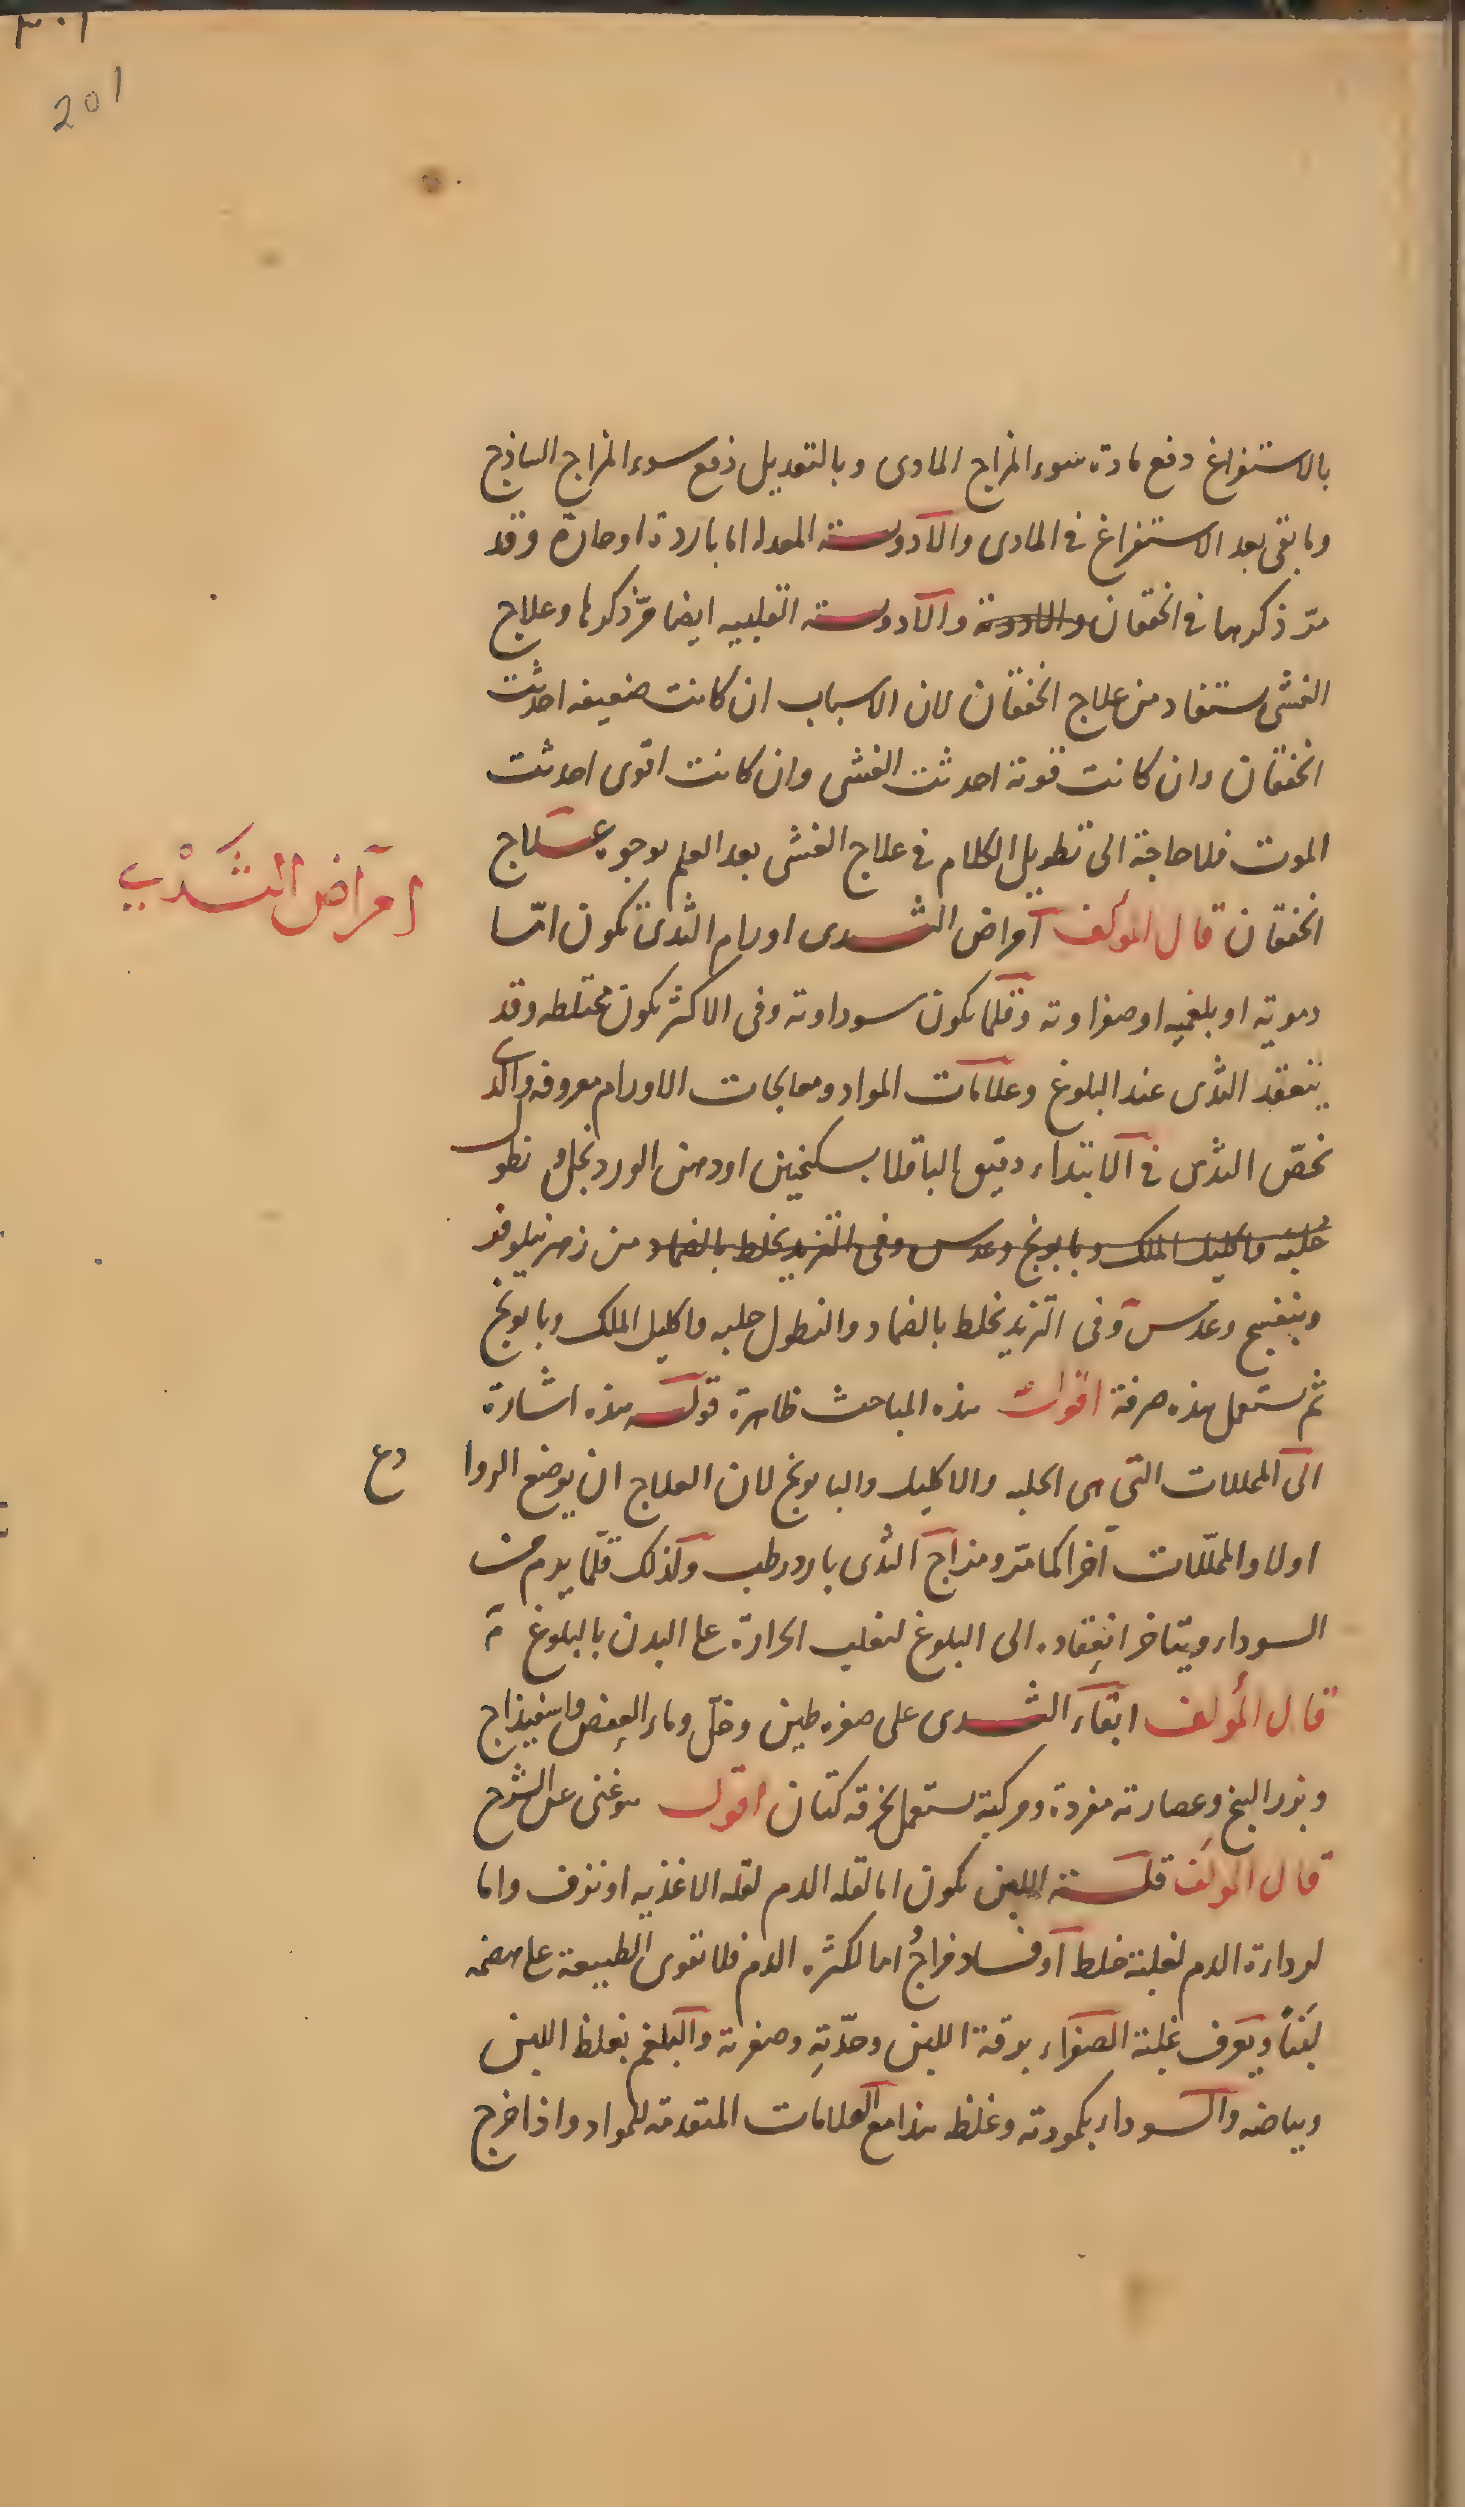 ٢٠١
201
بالاستفراغ دفع مادة سوء المزاج المادى وبالتعديل دفع سوء المزاج الساذج
وما بقى بعد الاستفراغ فى المادى والادوية المعدلة اما باردة او حارة وقد
مر ذكرها فى الخفقان والادوية والادوية القلبيه ايضا مرّ ذكرها وعلاج
الغشى يستفاد من علاج الخفقان لان الاسباب ان كانت ضعيفه احدثت
الخفقان وان كانت قوية احدثت الغشى وان كانت اقوى احدثت
الموت فلا حاجة الى تطويل الكلام فى علاج الغشى بعد العلم بوجوه علاج
امراض الثَدْي
الخفقان قال المؤلف امراض الثدى اورام الثدى تكون امّا
دموية او بلغميه او صفراوية وقلّما يكون سوداوية وفى الاكثر يكون مختلطه وقد
ينعقد الثدى عند البلوغ وعلامات المواد ومعالجات الاورام معروفه والذى
يخصّ الثدى فى الابتداء دقيق الباقلا بسكنجبين او دهن الورد بخل ونطول
حلبه واكليل الملك وبابونج وعدس وفى التزيد يخلط بالضماد من زهر نيلوفر
وبنفسج وعدس وفى التزيد يخلط بالضماد والنطول حلبه واكليل الملك وبابونج
ثم يستعمل هذه صرفة اقول هذه المباحث ظاهرة قوله هذه اشارة
الى المحللات التى هى الحلبه والاكليل والبابونج لان العلاج ان يوضع الروا
دع
اولا والمحلّلات آخرا كما مر ومزاج الثدى بارد رطب ولذلك قلّما يرم من
السوداء ويتاخر انعقاده الى البلوغ لتغلب الحرارة على البدن بالبلوغ
قال المؤلف ابقاء الثدى على صغره طين وخلّ وماء العفص واسفيذاج
وبزر البنج وعصارته مفردة ومركبة يستعمل بخرقه كتان اقول هو غنى عن الشرح
قال المؤلف قلة اللبن تكون اما لقله الدم لقله الاغذيه او نزف واما
لرداءة الدم لغلبة خلط او فساد مزاج واما لكثره الدم فلا تقوى الطبيعة على هضمه
لبَنًا ويعرف غلبة الصفراء برقة اللبن وحدّتِه وصفرته والبلغم بغلظ اللبن
وبياضه والسوداء بكمودته وغلظ هذا مع العلامات المتقدمة للمواد واذا خرج